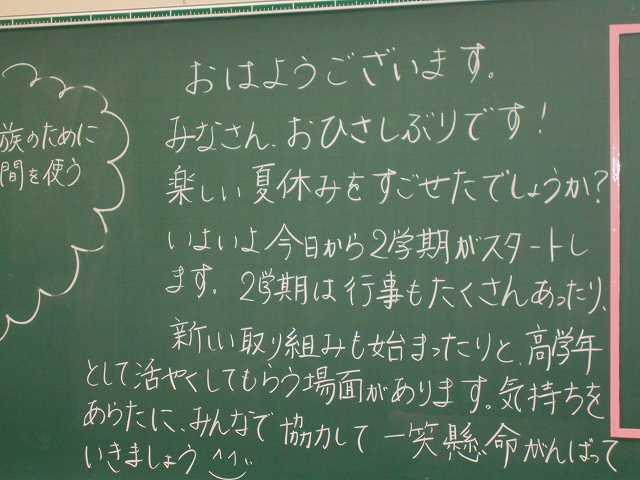 族のために
間を使う
おはようございます。
みなさん、おひさしぶりです!
楽しい夏休みをすごせたでしょうか?
いよいよ今日から2学期がスタートし
ます。2学期は行事もたくさんあったり、
新しい取り組みも始まったりと、高学年
として活やくしてもらう場面があります。気持ちを
あらたに、みんなで協力して一笑懸命がんばって
いきましょう^^